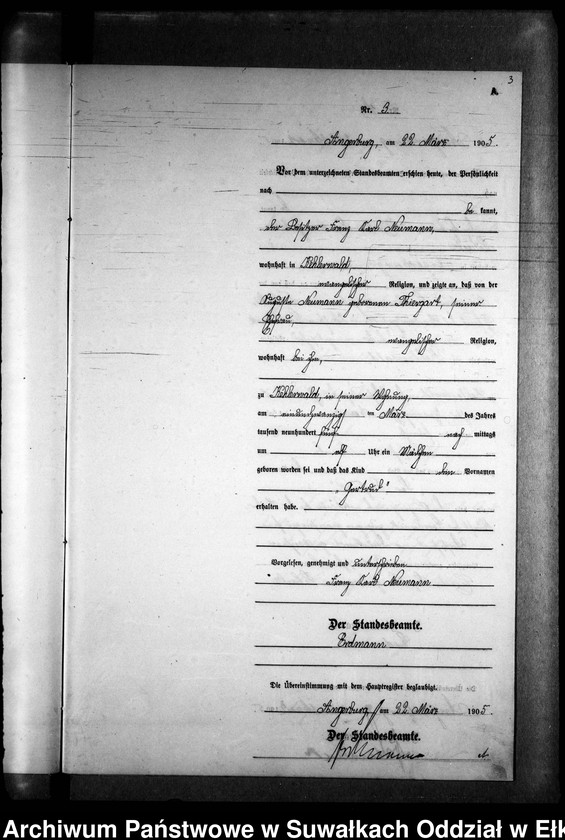 3
A.
Nr. 3.
Angerburg, am 22. März 1905.
Vor dem unterzeichneten Standesbeamten erschien heute, der Persönlichkeit
nach
be kannt,
der Besitzer Franz Karl Neumann,
wohnhaft in Kehlerwald,
evangelischer Religion, und zeigte an, daß von der
Auguste Neumann geborenen Thiergart, seiner
Ehefrau,
evangelischer Religion,
wohnhaft bei ihm,
zu Kehlerwald, in seiner Wohnung,
am einundzwanzigsten März des Jahres
tausend neunhundert fünf nach mittags
um elf Uhr ein Mädchen
geboren worden sei und daß das Kind den Vornamen
„Gertrud"
erhalten habe.
Vorgelesen, genehmigt und unterschrieben
Franz Karl Neumann
Der Standesbeamte.
Erdmann
Die Übereinstimmung mit dem Hauptregister beglaubigt.
Angerburg, am 22. März 1905.
Der Standesbeamte.
Erdmann
Archiwum Państwowe w Suwałkach Oddział w Ełk